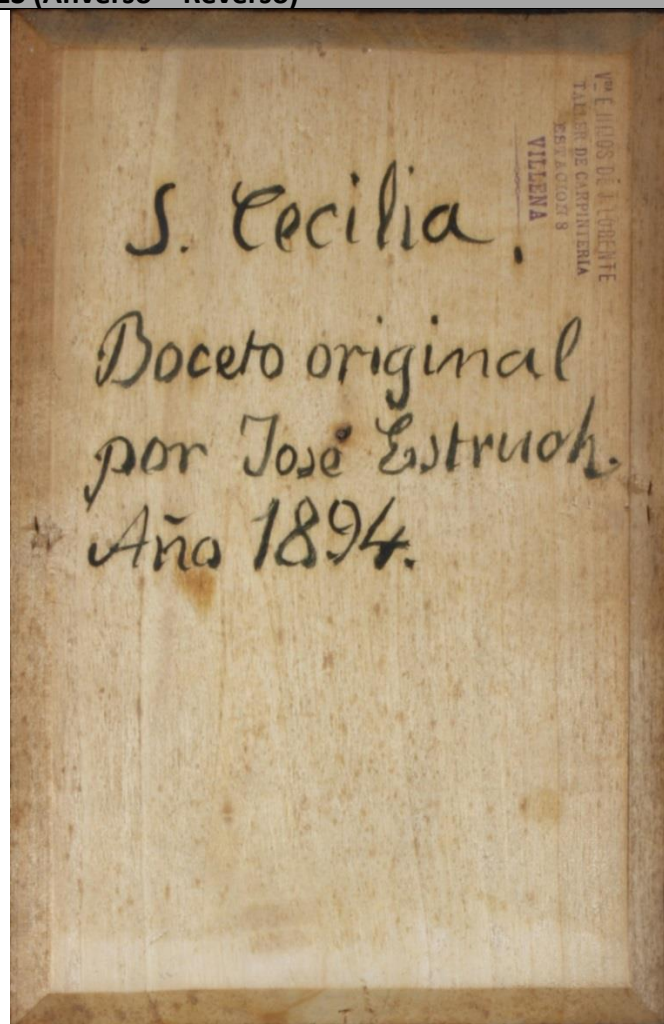 (Anverso – Reverso)
S. Cecilia.
Boceto original
por José Estruch.
Año 1894.
Vda E HIJOS DE J. LORENTE
TALLER DE CARPINTERÍA
ESTACION 8
VILLENA